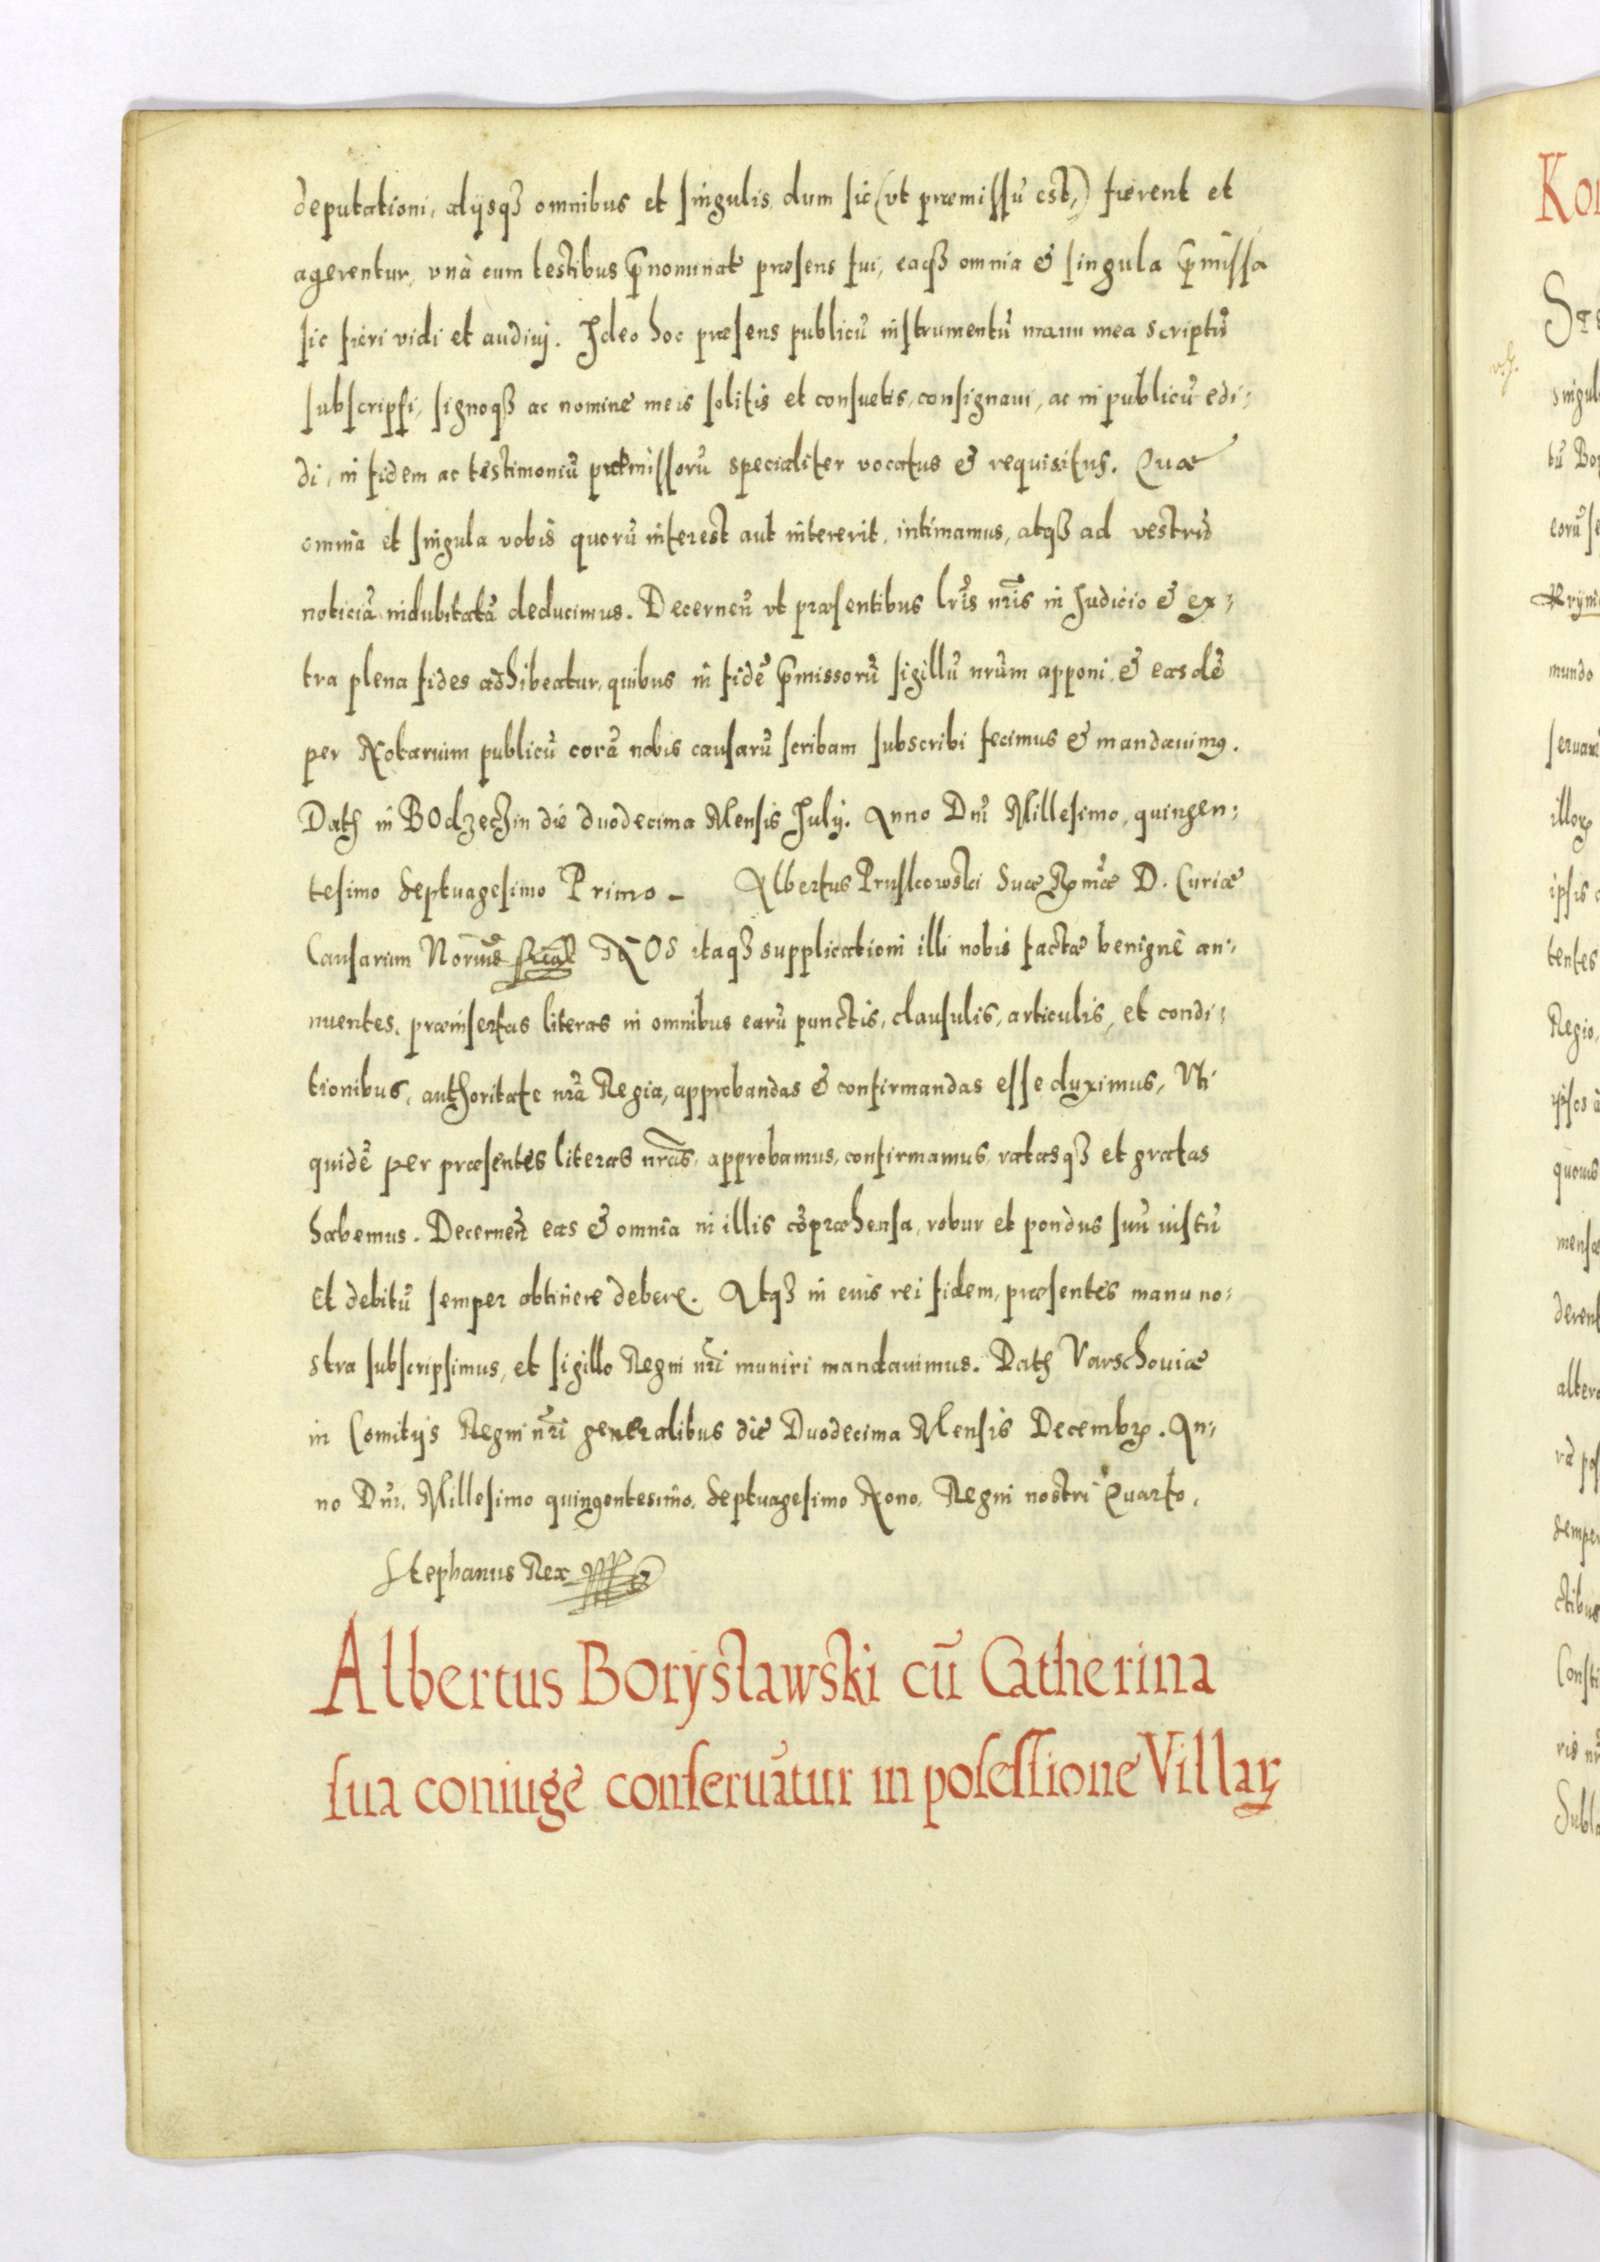 deputationi, alijsqȝ omnibus et singulis, dum sic (vt præmissũ est,) fierent et
agerentur, vnà cum testibus p̃nominat præsens fui, eaqȝ omnia & singula p̃missa
sic fieri vidi et audiui. Ideo hoc præsens publicũ instrumentũ manu mea scriptũ
subscripsi, signoqȝ ac nomine meis solitis et consuetis, consignaui, ac in publicũ edi-
di, in fidem ac testimoniũ præmissorũ specialiter vocatus & requisitus. Quæ
omnia et singula vobis quorũ interest aut intererit, intimamus, atqȝ ad vestrũ
noticiã indubitatã deducimus. Decerneñ vt præsentibus lr̃is nr̃is in Judicio & ex-
tra plena fides adhibeatur, quibus in fidẽ p̃missorũ sigillũ nrũm apponi, & easdẽ
per Notarium publicũ corã nobis causarũ scribam subscribi fecimus & mandauimꝰ.
Datȝ in BOdzeczin die duodecima Mensis Julij. Anno Dnĩ Millesimo, quingen-
tesimo Septuagesimo Primo - Albertus Pruslcowski Suæ R D. Curiæ
Causarum NOS itaqȝ supplicationi illi nobis factæ benignè an-
nuentes, præinsertas literas in omnibus earũ punctis, clausulis, articulis, et condi-
tionibus, authoritate nr̃a Regia, approbandas & confirmandas esse duximus, Vti
quidẽ per præsentes literas nr̃as, approbamus, confirmamus, ratasqȝ et gratas
habemus. Decerneñ eas & omnia in illis cõpræhensa, robur et pondus suũ iustũ
et debitũ semper obtinere debere. Atqȝ in euis rei fidem, præsentes manu no-
stra subscripsimus, et sigillo Regni nr̃i muniri mandauimus. Datȝ Varschouiæ
in Comitijs Regni nr̃i generalibus die Duodecima Mensis Decembrꝭ. An-
no Dnĩ. Millesimo quingentesimo, Septuagesimo Nono, Regni nostri Quarto.
Stephanus Rex
Albertus Borysławski cũ Catherina
sua coniuge conseruãtur in posessione Villaꝝ